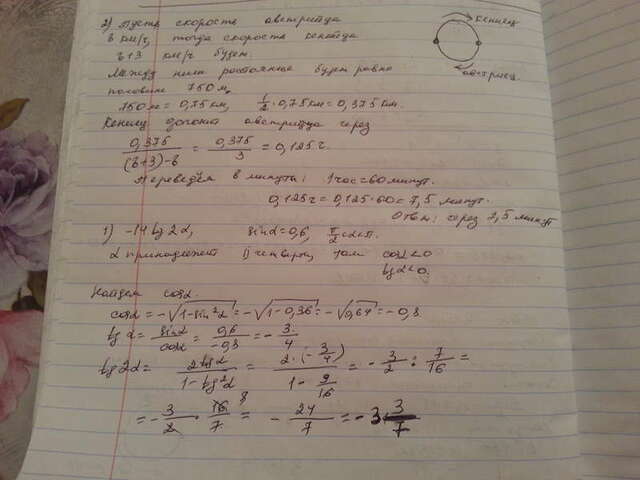 2) Пусть скорость австрийца
в км/ч, тогда скорость кенийца
в+3 км/ч будет.
Между ними расстояние будет равно
половине 750 м.
750 м = 0,75 км, 1/2 · 0,75 км = 0,375 км.
Кениец догонит австрийца через
0,375/((в+3)-в) = 0,375/3 = 0,125 ч.
Переведём в минуты: 1 час = 60 минут.
0,125 ч = 0,125 · 60 = 7,5 минут.
Ответ: через 7,5 минут
кениец
австриец
1) -14 tg 2α, sin α = 0,6, π/2 < α < π.
α принадлежит II четверти, там cos α < 0
tg α < 0.
Найдем cos α.
cos α = -√(1-sin²α) = -√(1-0,36) = -√0,64 = -0,8
tg α = sin α/cos α = 0,6/-0,8 = -3/4
tg 2α = 2 tg α/(1-tg²α) = 2·(-3/4)/(1-9/16) = -3/2 : 7/16 =
= -3/2 · 16/7 8 = -24/7 = -3 3/7